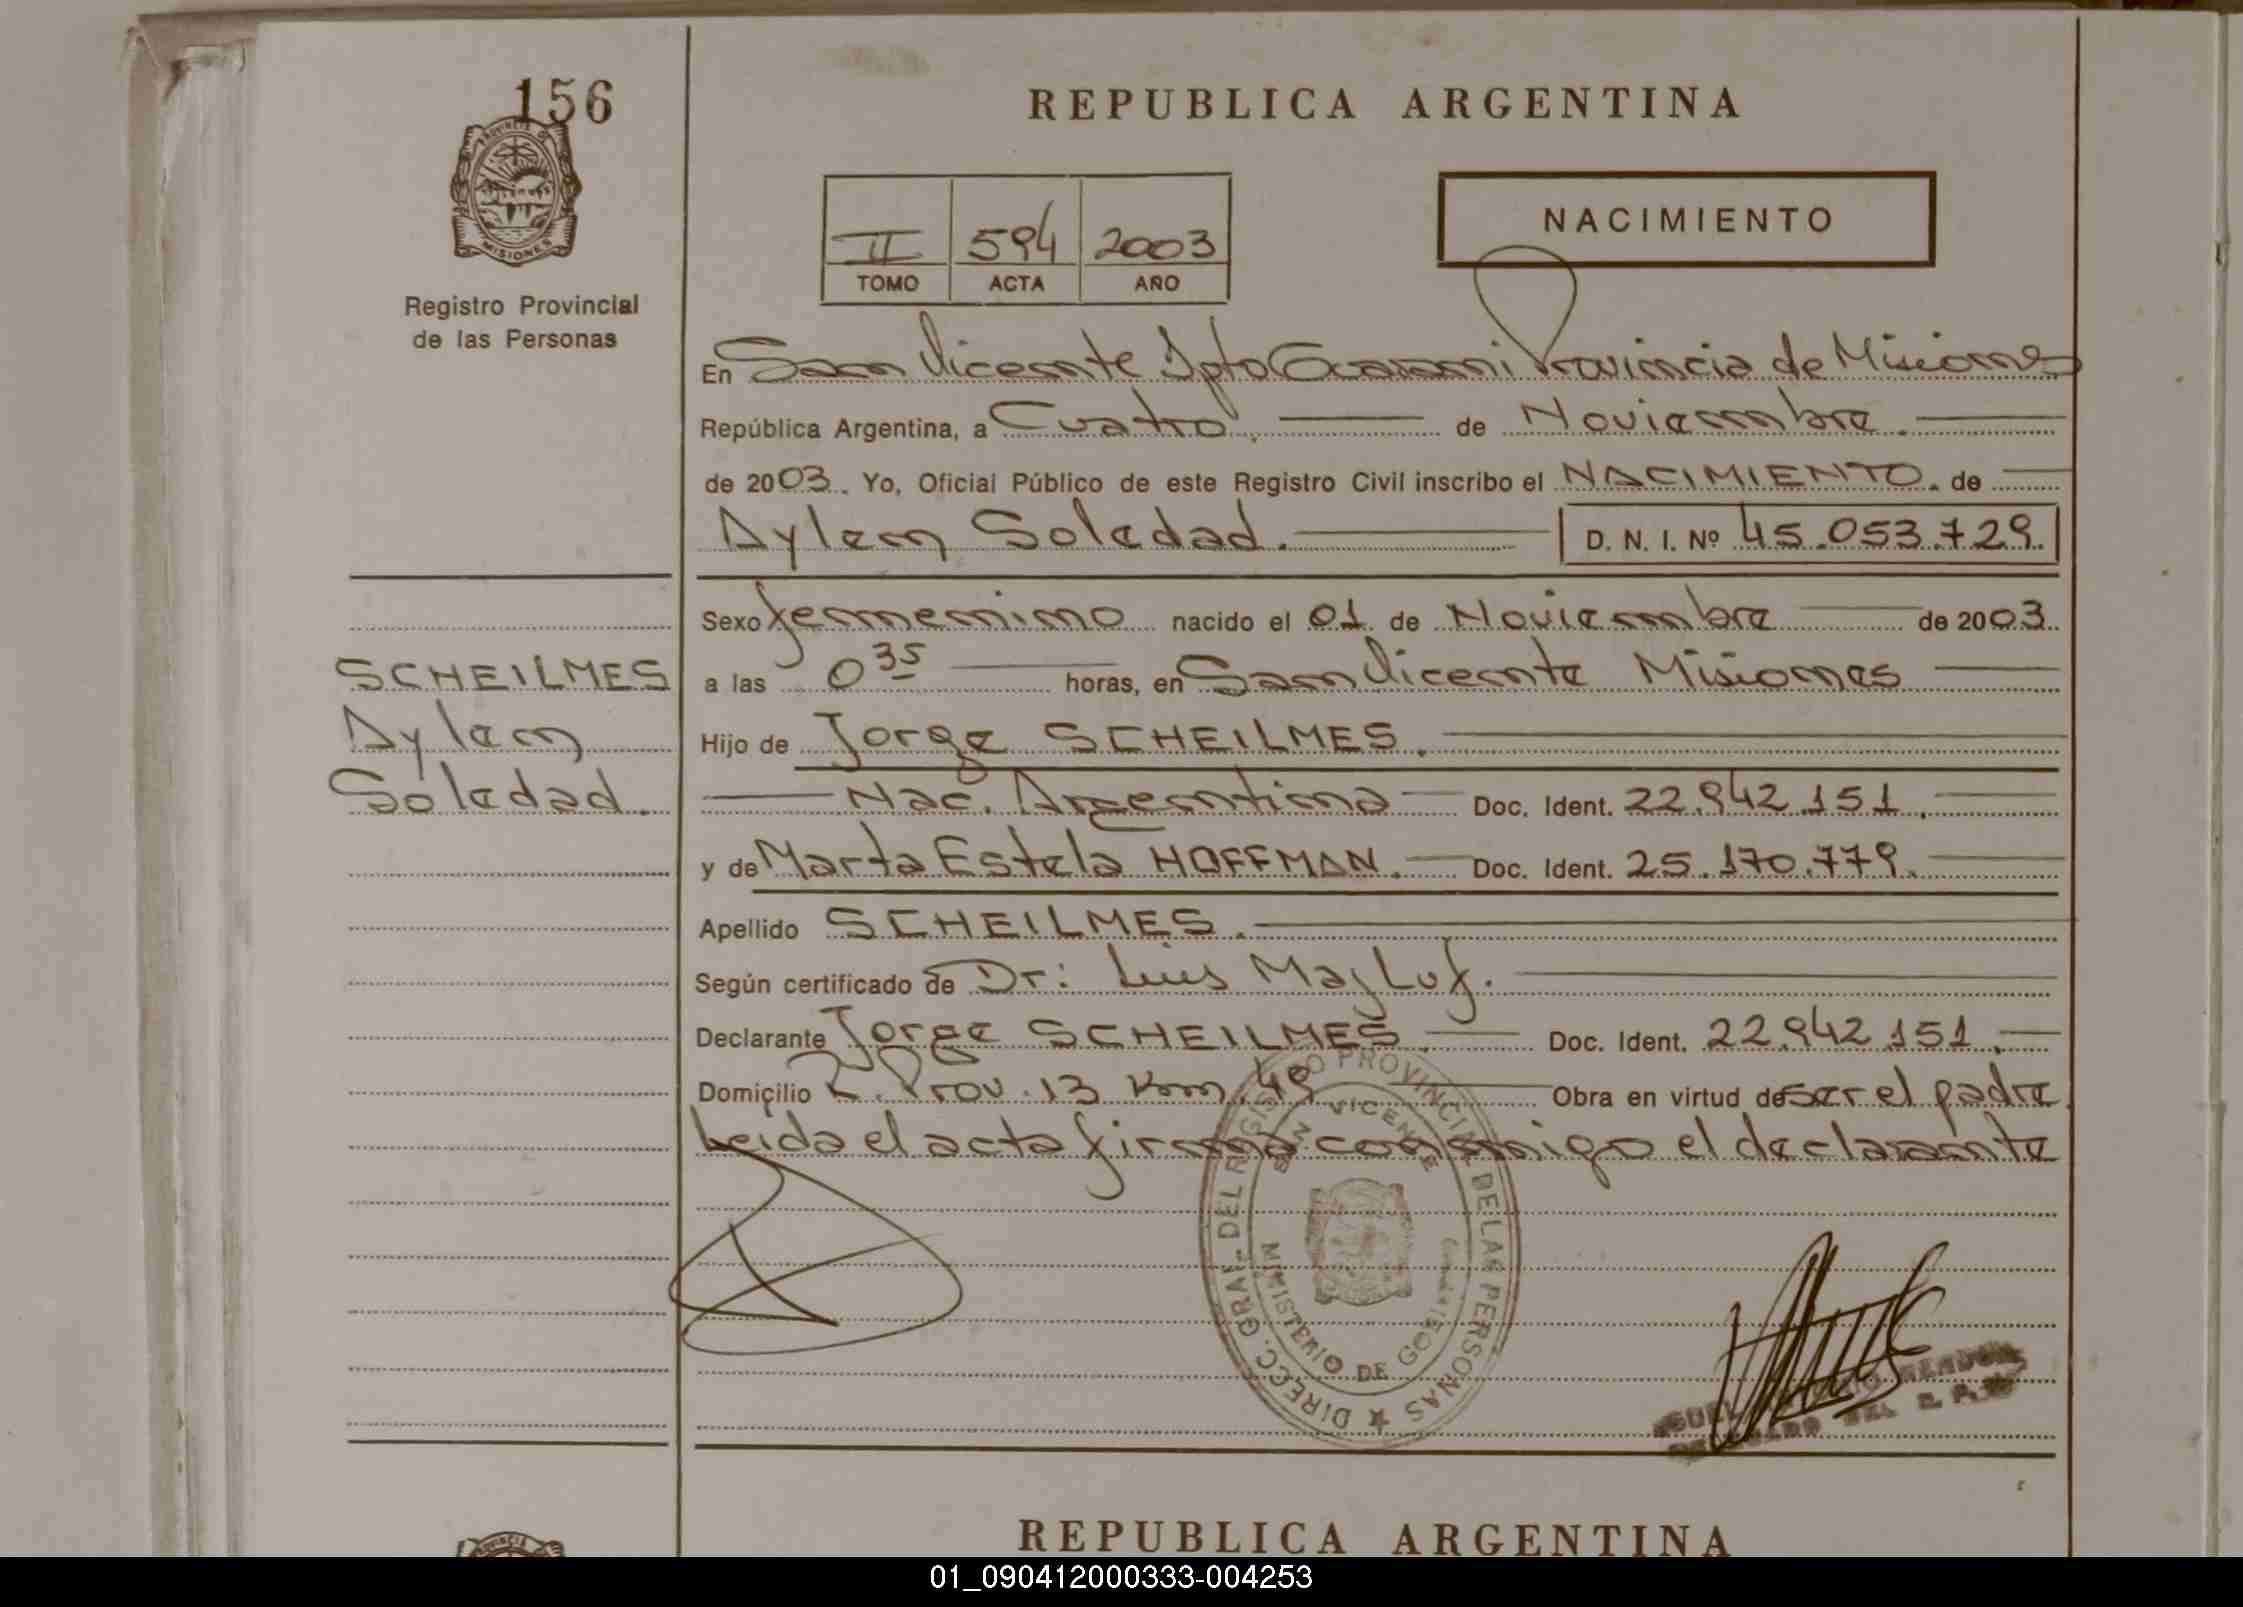 156
REPUBLICA ARGENTINA
PROVINCIA DE
MISIONES
Registro Provincial
de las Personas
II 594 2003
TOMO ACTA AÑO
NACIMIENTO
En San Vicente Dpto Guarani Provincia de Misiones
República Argentina, a Cuatro. de Noviembre.
de 2003. Yo, Oficial Público de este Registro Civil inscribo el NACIMIENTO. de
Aylen Soledad. D. N. I. Nº 45.053.729.
Sexo femenino nacido el 01 de Noviembre de 2003.
a las 0 35 horas, en San Vicente Misiones
Hijo de Jorge SCHEILMES.
Nac. Argentina Doc. Ident. 22.942.151.
y de Marta Estela HOFFMAN. Doc. Ident. 25.170.779.
Apellido SCHEILMES.
Según certificado de Dr: Luis Mayluf.
Declarante Jorge SCHEILMES. Doc. Ident. 22.942.151.
Domicilio R. Prov. 13 Km. 49 Obra en virtud de ser el padre.
Leida el acta firma conmigo el declarante
SCHEILMES
Aylen
Soledad.
DIRECC. GRAL. DEL REGISTRO PROVINCIAL DE LAS PERSONAS
SAN VICENTE
MINISTERIO DE GOBIERNO
REPUBLICA ARGENTINA
01_090412000333-004253